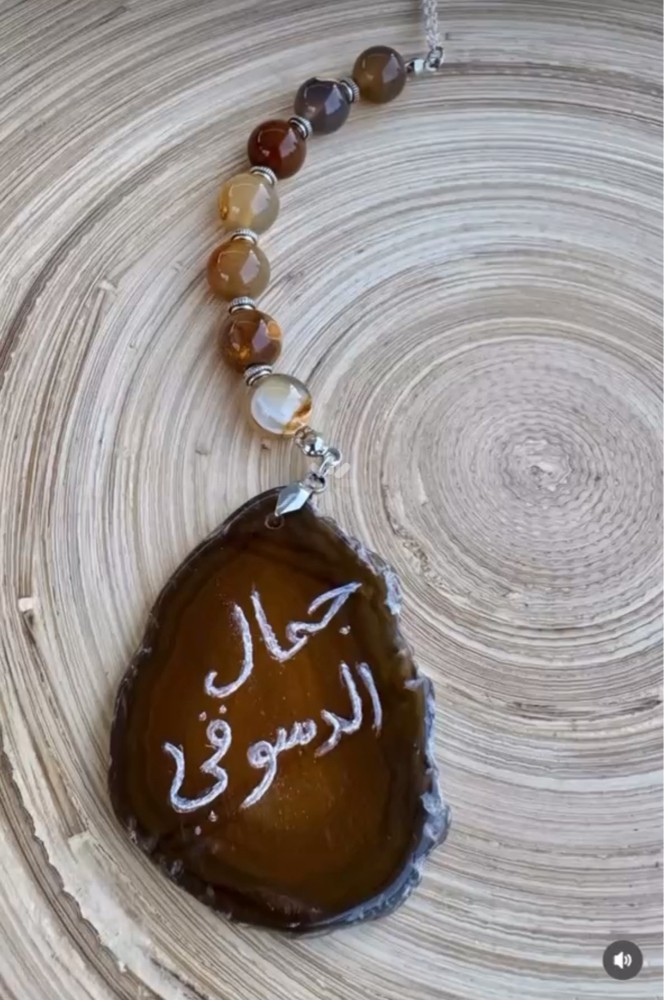 جمال
الدسوقي